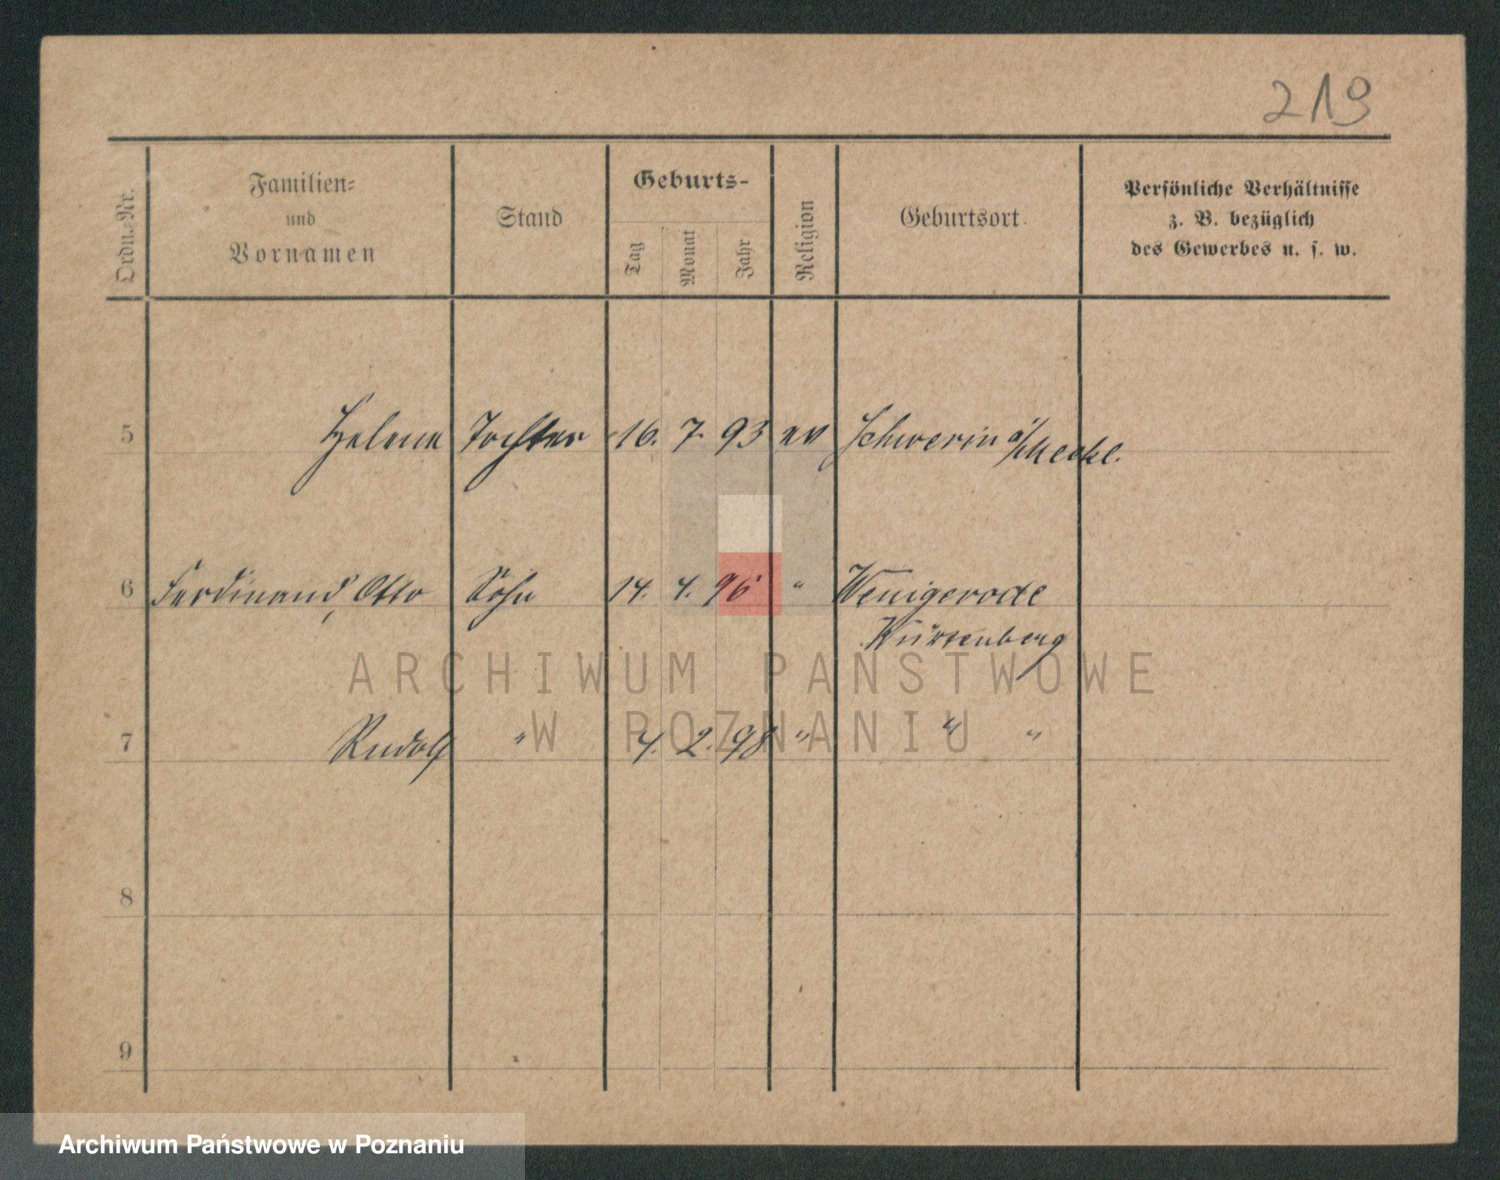 219
Ordn.-Nr.
Familien-
und
Vornamen
Stand
Geburts-
Tag
Monat
Jahr
Religion
Geburtsort
Persönliche Verhältnisse
z. B. bezüglich
des Gewerbes u. s. w.
5 Helene Tochter 16. 7. 93 ev Schwerin a/Meckl.
6 Ferdinand, Otto Sohn 14. 4. 96 " Wenigerode
7 Rudolf " 4. 2. 98 " " "
8
9
ARCHIWUM PAŃSTWOWE
W POZNANIU
Archiwum Państwowe w Poznaniu